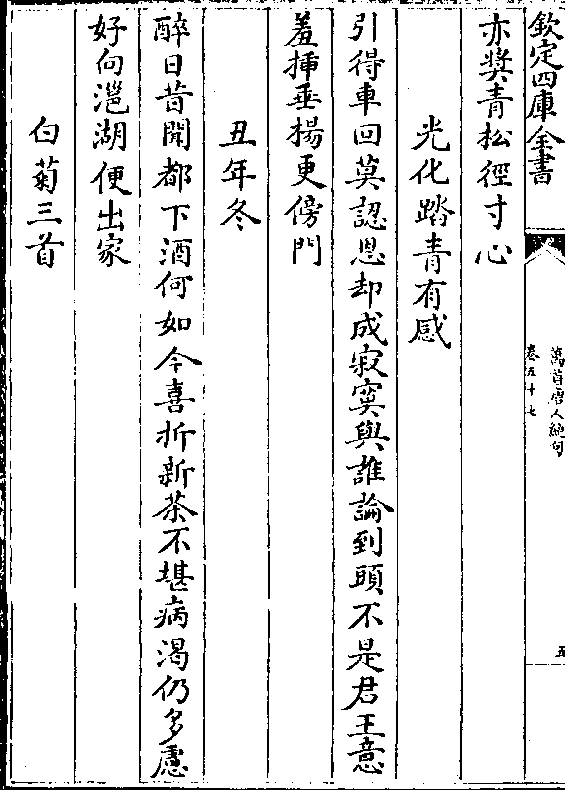 欽定四庫全書
萬首唐人絶句
卷五十七
五
亦奬青松徑寸心
光化踏青有感
引得車回莫認恩却成寂寞與誰論到頭不是君王意
羞揷垂楊更傍門
丑年冬
醉日昔聞都下酒何如今喜折新茶不堪病渴仍多慮
好向㴩湖便出家
白菊三首